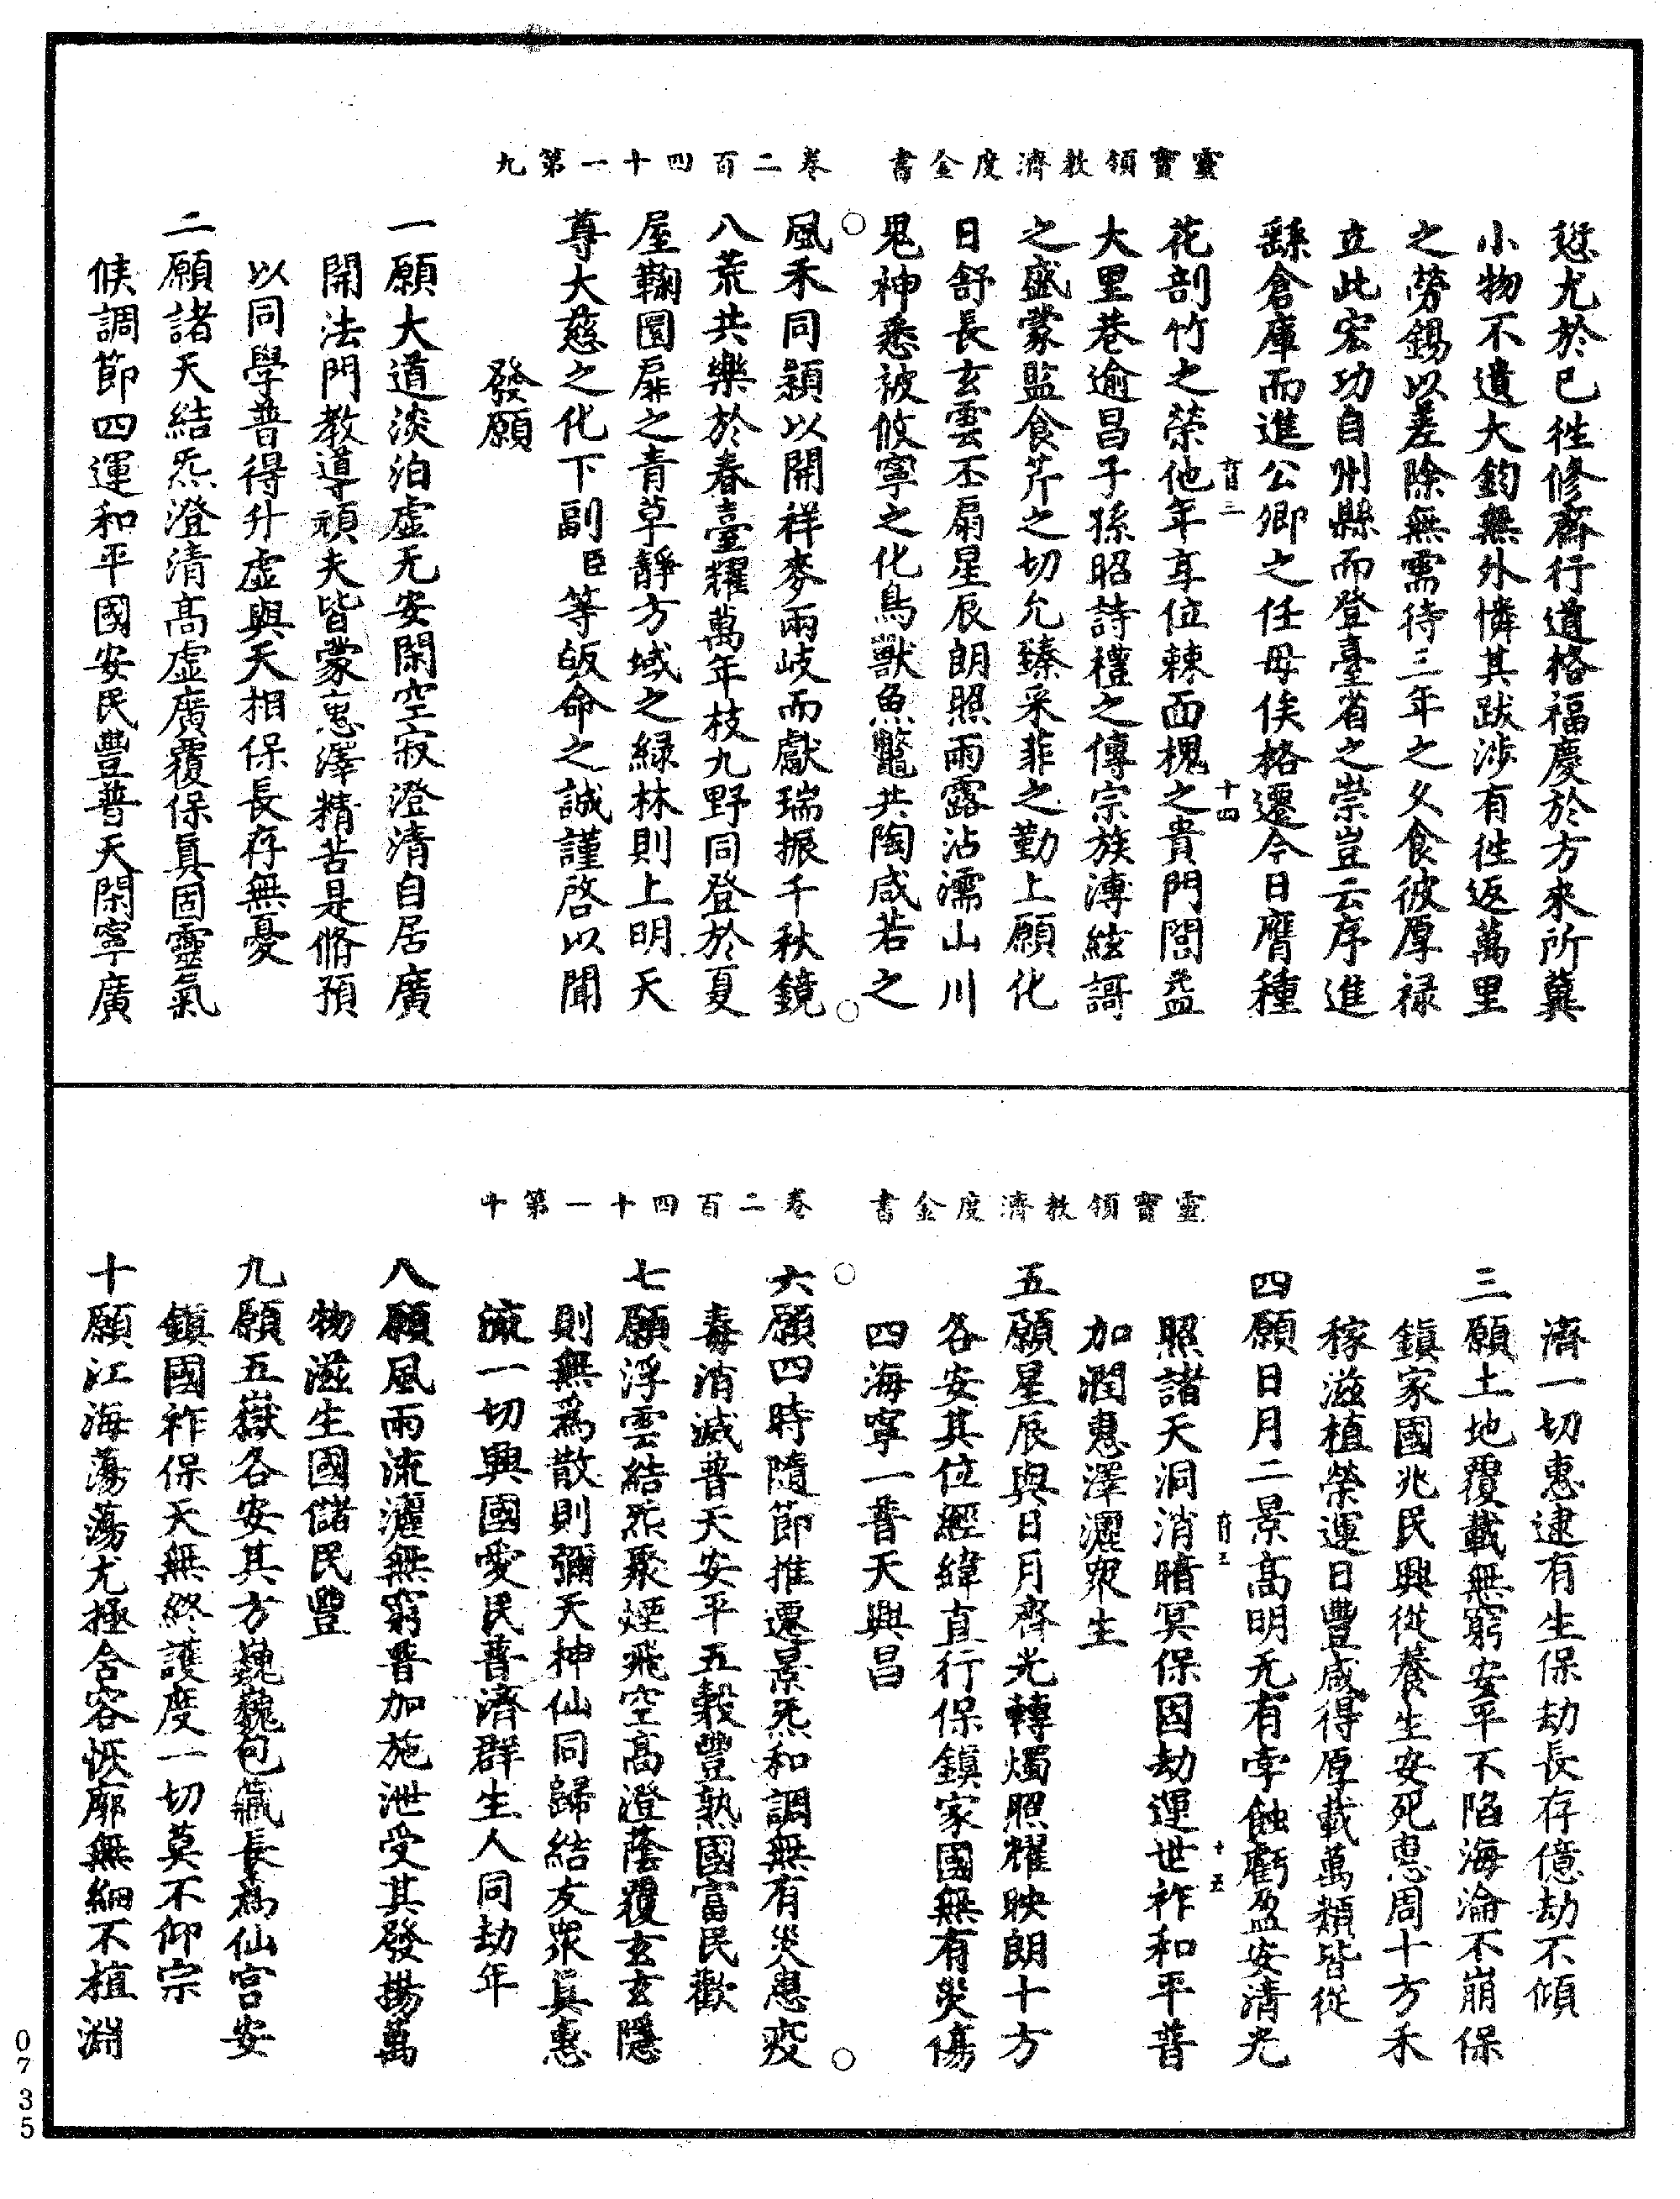 靈寶領教濟度金書　卷二百四十一第九
愆尤於已徃修齋行道格福慶於方來所兾
小物不遺大鈞無外憐其跋涉有徃返萬里
之勞錫以差除無需待三年之久食彼厚禄
立此宏功自州縣而登臺省之崇豈云序進
繇倉庫而進公卿之任毋俟格遷今日膺種
花剖竹之榮他年享位棘面槐之貴門閭益
大里巷逾昌子孫昭詩禮之傳宗族溥絃謌
之盛蒙監食芹之切允臻采菲之勤上願化
日舒長玄雲丕扇星辰朗照雨露沾濡山川
鬼神悉被攸寧之化鳥獸魚鼈共陶咸若之
風禾同潁以開祥麥兩岐而獻瑞振千秋鏡
八荒共樂於春臺耀萬年枝九野同登於夏
屋鞠圜扉之青草靜方域之緑林則上明天
尊大慈之化下副臣等皈命之誠謹啓以聞
發願
一願大道淡泊虛无安閑空寂澄清自居廣
開法門教導頑夫皆蒙惠澤精苦是脩預
以同學普得升虛與天相保長存無憂
二願諸天結炁澄清高虛廣覆保真固靈氣
候調節四運和平國安民豐普天閑寧廣
靈寶領教濟度金書　卷二百四十一第十
濟一切惠逮有生保劫長存億劫不傾
三願土地覆載無窮安平不陷海淪不崩保
鎮家國兆民興從養生安死惠周十方禾
稼滋植榮運日豐咸得厚載萬類皆從
四願日月二景高明无有虧蝕虧盈安清光
照諸天洞消暗冥保固劫運世祚和平普
加潤惠澤灑衆生
五願星辰與日月齊光轉燭照耀映朗十方
各安其位經緯直行保鎮家國無有災傷
四海寧一普天興昌
六願四時隨節推遷景炁和調無有災患疫
毒消滅普天安平五穀豐熟國富民歡
七願浮雲結炁聚煙飛空高澄蔭覆玄玄隱
則無爲散則彌天神仙同歸結友衆真惠
流一切興國愛民普濟群生人同劫年
八願風雨流灑無窮普加施泄受其發揚萬
物滋生國儲民豐
九願五嶽各安其方巍巍包藏長爲仙宮安
鎮國祚保天無終護度一切莫不仰宗
十願江海蕩蕩尤極含容恢廓無細不植淵
0735